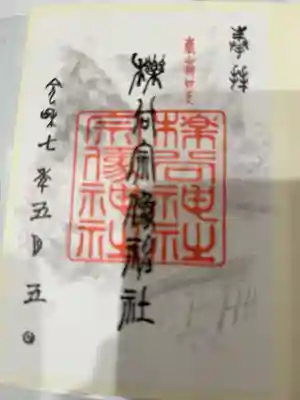 奉拝
櫟谷宗像神社
櫟谷神社
宗像神社
令和七年五月五日